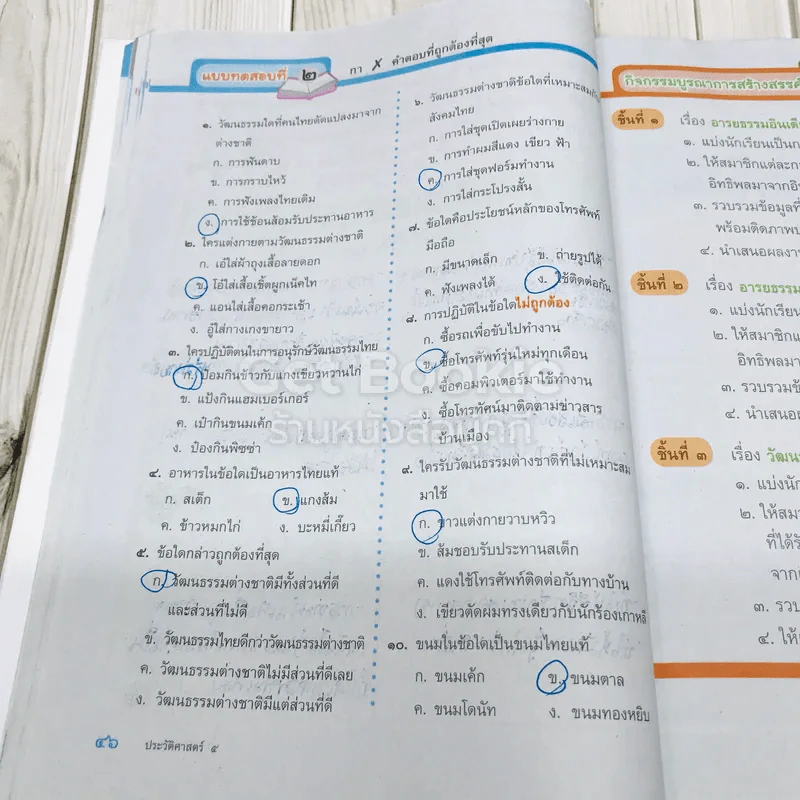 แบบทดสอบที่ ๒
กา X คำตอบที่ถูกต้องที่สุด
๑. วัฒนธรรมใดที่คนไทยดัดแปลงมาจาก
ต่างชาติ
ก. การฟันดาบ
ข. การกราบไหว้
ค. การฟังเพลงไทยเดิม
ง. การใช้ช้อนส้อมรับประทานอาหาร
๒. ใครแต่งกายตามวัฒนธรรมต่างชาติ
ก. เอ๋ใส่ผ้าถุงเสื้อลายดอก
ข. โอ๋ใส่เสื้อเชิ้ตผูกเน็คไท
ค. แอนใส่เสื้อคอกระเช้า
ง. อู๋ใส่กางเกงขายาว
๓. ใครปฏิบัติตนในการอนุรักษ์วัฒนธรรมไทย
ก. ป้อมกินข้าวกับแกงเขียวหวานไก่
ข. แป้งกินแฮมเบอร์เกอร์
ค. เป่ากินขนมเค้ก
ง. ป๋องกินพิซซ่า
๔. อาหารในข้อใดเป็นอาหารไทยแท้
ก. สเต็ก ข. แกงส้ม
ค. ข้าวหมกไก่ ง. บะหมี่เกี๊ยว
๕. ข้อใดกล่าวถูกต้องที่สุด
ก. วัฒนธรรมต่างชาติมีทั้งส่วนที่ดี
และส่วนที่ไม่ดี
ข. วัฒนธรรมไทยดีกว่าวัฒนธรรมต่างชาติ
ค. วัฒนธรรมต่างชาติไม่มีส่วนที่ดีเลย
ง. วัฒนธรรมต่างชาติมีแต่ส่วนที่ดี
๔๖ ประวัติศาสตร์ ๕
๖. วัฒนธรรมต่างชาติข้อใดที่เหมาะสมกับ
สังคมไทย
ก. การใส่ชุดเปิดเผยร่างกาย
ข. การทำผมสีแดง เขียว ฟ้า
ค. การใส่ชุดฟอร์มทำงาน
ง. การใส่กระโปรงสั้น
๗. ข้อใดคือประโยชน์หลักของโทรศัพท์
มือถือ
ก. มีขนาดเล็ก ข. ถ่ายรูปได้
ค. ฟังเพลงได้ ง. ใช้ติดต่อกัน
๘. การปฏิบัติในข้อใดไม่ถูกต้อง
ก. ซื้อรถเพื่อขับไปทำงาน
ข. ซื้อโทรศัพท์รุ่นใหม่ทุกเดือน
ค. ซื้อคอมพิวเตอร์มาใช้ทำงาน
ง. ซื้อโทรทัศน์มาติดตามข่าวสาร
บ้านเมือง
๙. ใครรับวัฒนธรรมต่างชาติที่ไม่เหมาะสม
มาใช้
ก. ขาวแต่งกายวาบหวิว
ข. ส้มชอบรับประทานสเต็ก
ค. แดงใช้โทรศัพท์ติดต่อกับทางบ้าน
ง. เขียวตัดผมทรงเดียวกับนักร้องเกาหลี
๑๐. ขนมในข้อใดเป็นขนมไทยแท้
ก. ขนมเค้ก ข. ขนมตาล
ค. ขนมโดนัท ง. ขนมทองหยิบ
กิจกรรมบูรณาการสร้างสรรค์
ชิ้นที่ ๑ เรื่อง อารยธรรมอินเดีย
๑. แบ่งนักเรียนเป็น
๒. ให้สมาชิกแต่ละ
อิทธิพลมาจาก
๓. รวบรวมข้อมูลที่
พร้อมติดภาพ
๔. นำเสนอผลงาน
ชิ้นที่ ๒ เรื่อง อารยธรรม
๑. แบ่งนักเรียน
๒. ให้สมาชิก
อิทธิพลมา
๓. รวบรวม
๔. นำเสนอ
ชิ้นที่ ๓ เรื่อง
๑. แบ่ง
๒. ให้
ที่ได้
จาก
๓. รวบ
๔. ให้
Get Bookie
ร้านหนังสือบุ๊คกี้